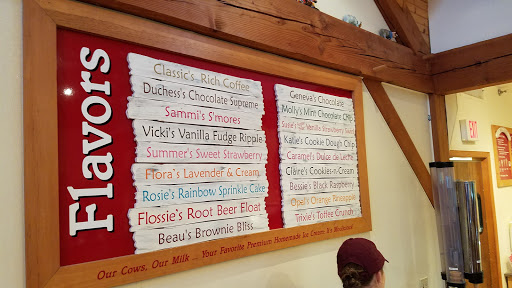 Flavors
Classic's Rich Coffee
Duchess's Chocolate Supreme
Sammi's S'mores
Vicki's Vanilla Fudge Ripple
Summer's Sweet Strawberry
Flora's Lavender & Cream
Rosie's Rainbow Sprinkle Cake
Flossie's Root Beer Float
Beau's Brownie Bliss
Geneva's Chocolate
Molly's Mint Chocolate Chip
Vanilla Strawberry
Katie's Cookie Dough Chip
Caramel's Dulce de Leche
Claire's Cookies-n-Cream
Bessie's Black Raspberry
Opal's Orange Pineapple
Trixie's Toffee Crunch
Our Cows, Our Milk ... Your Favorite Premium Homemade Ice Cream, It's
EXIT